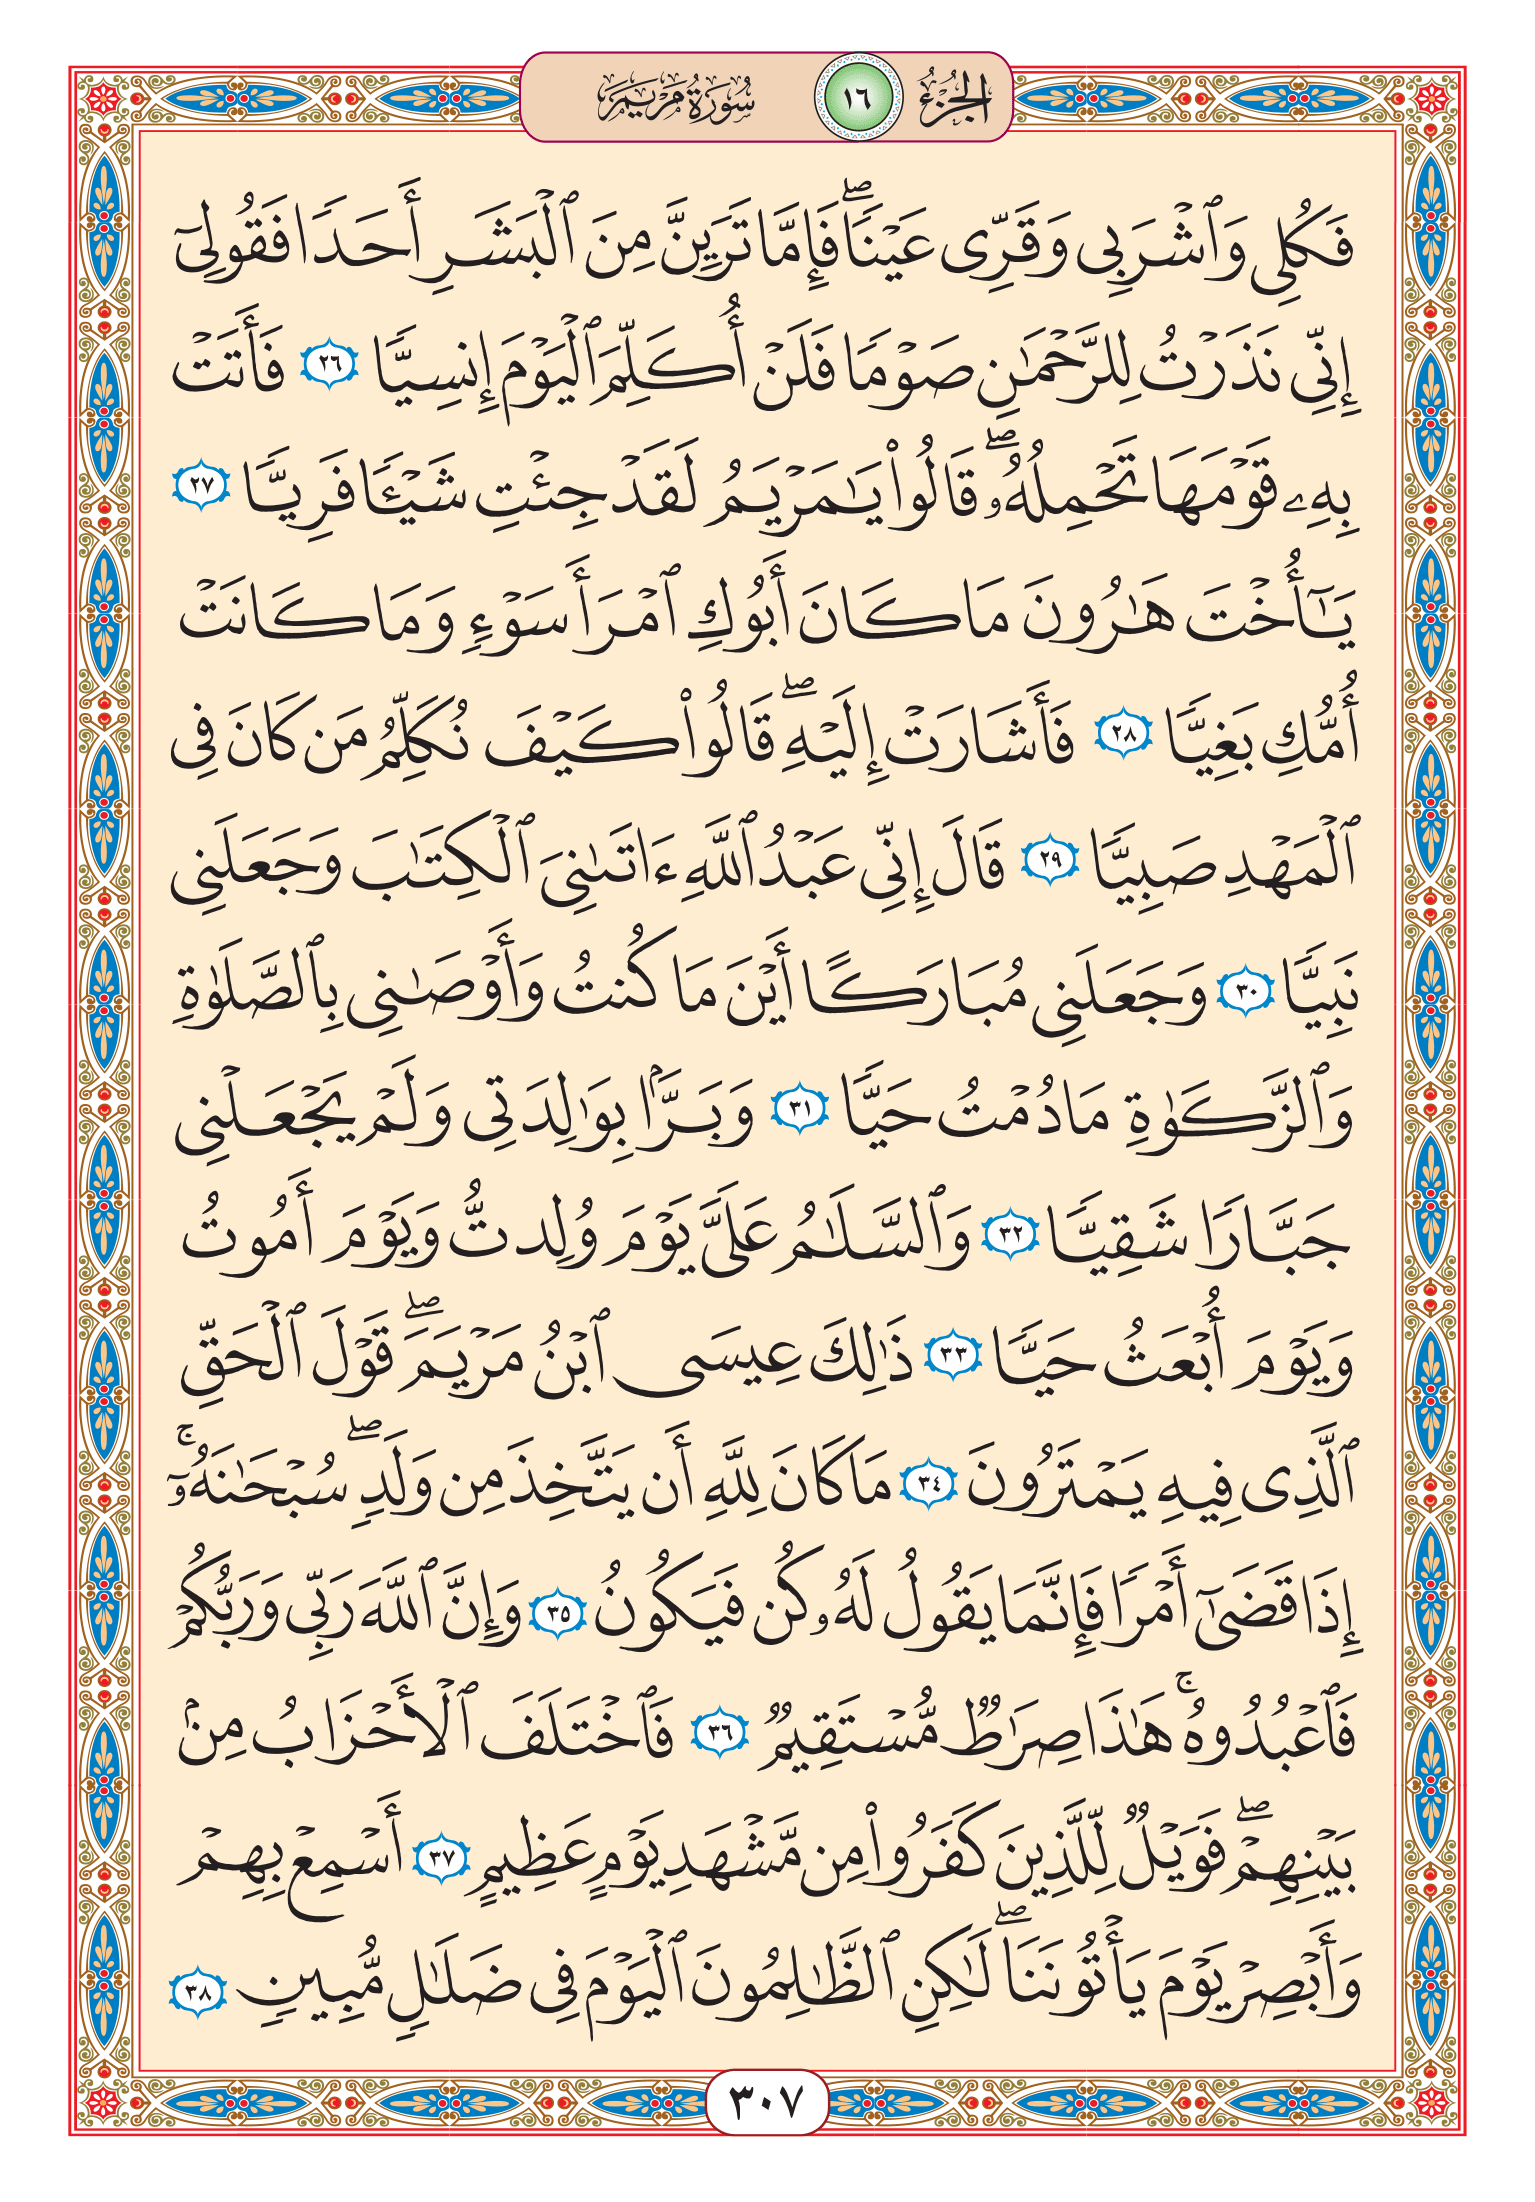 الجزء ١٦ سورة مريم
فَكُلِى وَٱشۡرَبِى وَقَرِّى عَيۡنٗاۖ فَإِمَّا تَرَيِنَّ مِنَ ٱلۡبَشَرِ أَحَدٗا فَقُولِىٓ
إِنِّى نَذَرۡتُ لِلرَّحۡمَٰنِ صَوۡمٗا فَلَنۡ أُكَلِّمَ ٱلۡيَوۡمَ إِنسِيّٗا ٢٦ فَأَتَتۡ
بِهِۦ قَوۡمَهَا تَحۡمِلُهُۥۖ قَالُواْ يَٰمَرۡيَمُ لَقَدۡ جِئۡتِ شَيۡـٔٗا فَرِيّٗا ٢٧
يَٰٓأُخۡتَ هَٰرُونَ مَا كَانَ أَبُوكِ ٱمۡرَأَ سَوۡءٖ وَمَا كَانَتۡ
أُمُّكِ بَغِيّٗا ٢٨ فَأَشَارَتۡ إِلَيۡهِۖ قَالُواْ كَيۡفَ نُكَلِّمُ مَن كَانَ فِى
ٱلۡمَهۡدِ صَبِيّٗا ٢٩ قَالَ إِنِّى عَبۡدُ ٱللَّهِ ءَاتَىٰنِىَ ٱلۡكِتَٰبَ وَجَعَلَنِى
نَبِيّٗا ٣٠ وَجَعَلَنِى مُبَارَكًا أَيۡنَ مَا كُنتُ وَأَوۡصَٰنِى بِٱلصَّلَوٰةِ
وَٱلزَّكَوٰةِ مَا دُمۡتُ حَيّٗا ٣١ وَبَرَّۢا بِوَٰلِدَتِى وَلَمۡ يَجۡعَلۡنِى
جَبَّارٗا شَقِيّٗا ٣٢ وَٱلسَّلَٰمُ عَلَىَّ يَوۡمَ وُلِدتُّ وَيَوۡمَ أَمُوتُ
وَيَوۡمَ أُبۡعَثُ حَيّٗا ٣٣ ذَٰلِكَ عِيسَى ٱبۡنُ مَرۡيَمَۖ قَوۡلَ ٱلۡحَقِّ
ٱلَّذِى فِيهِ يَمۡتَرُونَ ٣٤ مَا كَانَ لِلَّهِ أَن يَتَّخِذَ مِن وَلَدٖۖ سُبۡحَٰنَهُۥٓۚ
إِذَا قَضَىٰٓ أَمۡرٗا فَإِنَّمَا يَقُولُ لَهُۥ كُن فَيَكُونُ ٣٥ وَإِنَّ ٱللَّهَ رَبِّى وَرَبُّكُمۡ
فَٱعۡبُدُوهُۚ هَٰذَا صِرَٰطٞ مُّسۡتَقِيمٞ ٣٦ فَٱخۡتَلَفَ ٱلۡأَحۡزَابُ مِنۢ
بَيۡنِهِمۡۖ فَوَيۡلٞ لِّلَّذِينَ كَفَرُواْ مِن مَّشۡهَدِ يَوۡمٍ عَظِيمٍ ٣٧ أَسۡمِعۡ بِهِمۡ
وَأَبۡصِرۡ يَوۡمَ يَأۡتُونَنَاۖ لَٰكِنِ ٱلظَّٰلِمُونَ ٱلۡيَوۡمَ فِى ضَلَٰلٖ مُّبِينٖ ٣٨
٣٠٧